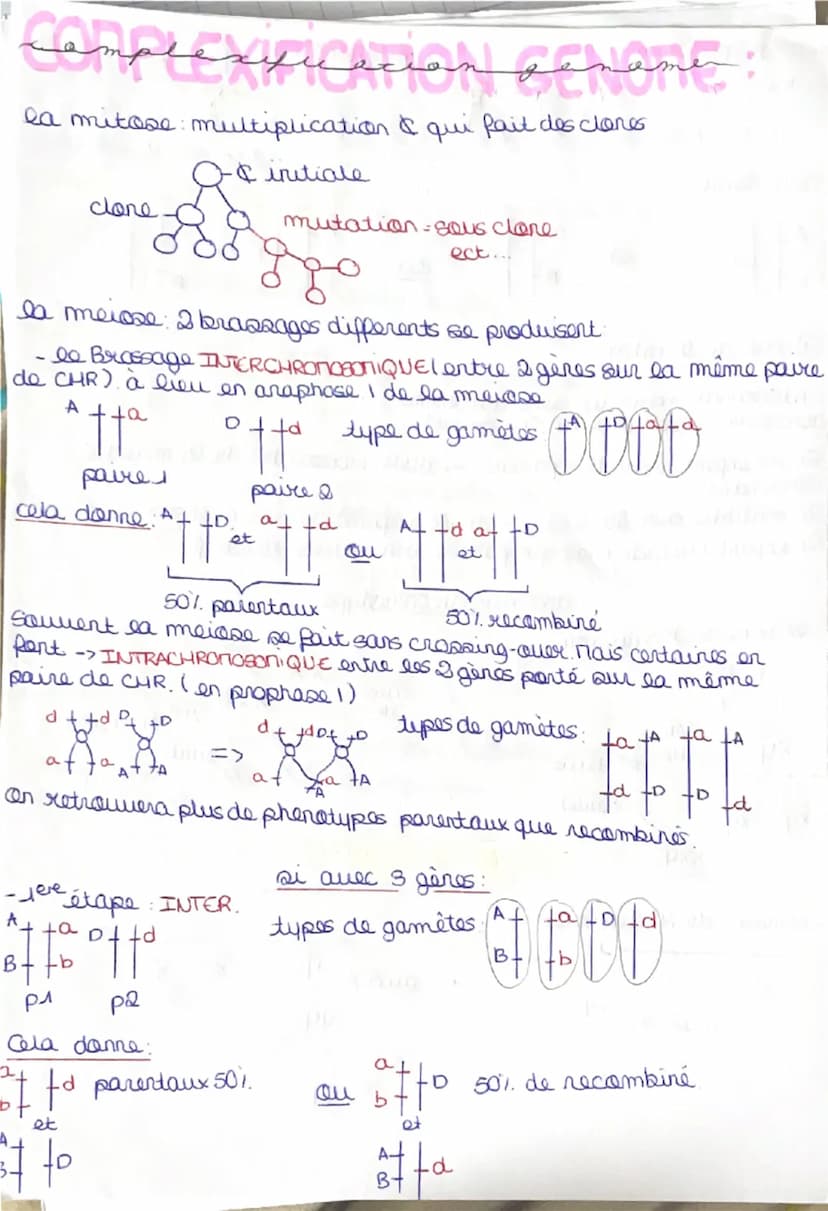 COMPLEXIFICATION GENOME :
complexification genome
la mitose : multiplication ₵ qui fait des clones
₵ initiale
clone
mutation = sous clone
ect...
la meiose : 2 brassages differents se produisent :
- le Brassage INTERCHROMOSOMIQUE (entre 2 gènes sur la même paire
de CHR) à lieu en anaphase 1 de la meiose
A a D d type de gamètes : A D a d
paire 1 paire 2
cela donne : A D et a d ou A d et a D
50% parentaux 50% recombiné
Souvent la meiose se fait sans crossing-over. Mais certaines en
font -> INTRACHROMOSOMIQUE entre les 2 gènes porté sur la même
paire de CHR. (en prophase 1)
d d D D => d d D D types de gamètes : a A a A
a a A A a a A A d D D d
on retrouvera plus de phenotypes parentaux que recombinés.
si avec 3 gènes :
- 1ere étape : INTER.
types de gamètes : A a D d
B b
A a D d
B b
p1 p2
Cela donne :
a d parentaux 50% ou a D 50% de recombiné
b b
et et
A D A d
B B